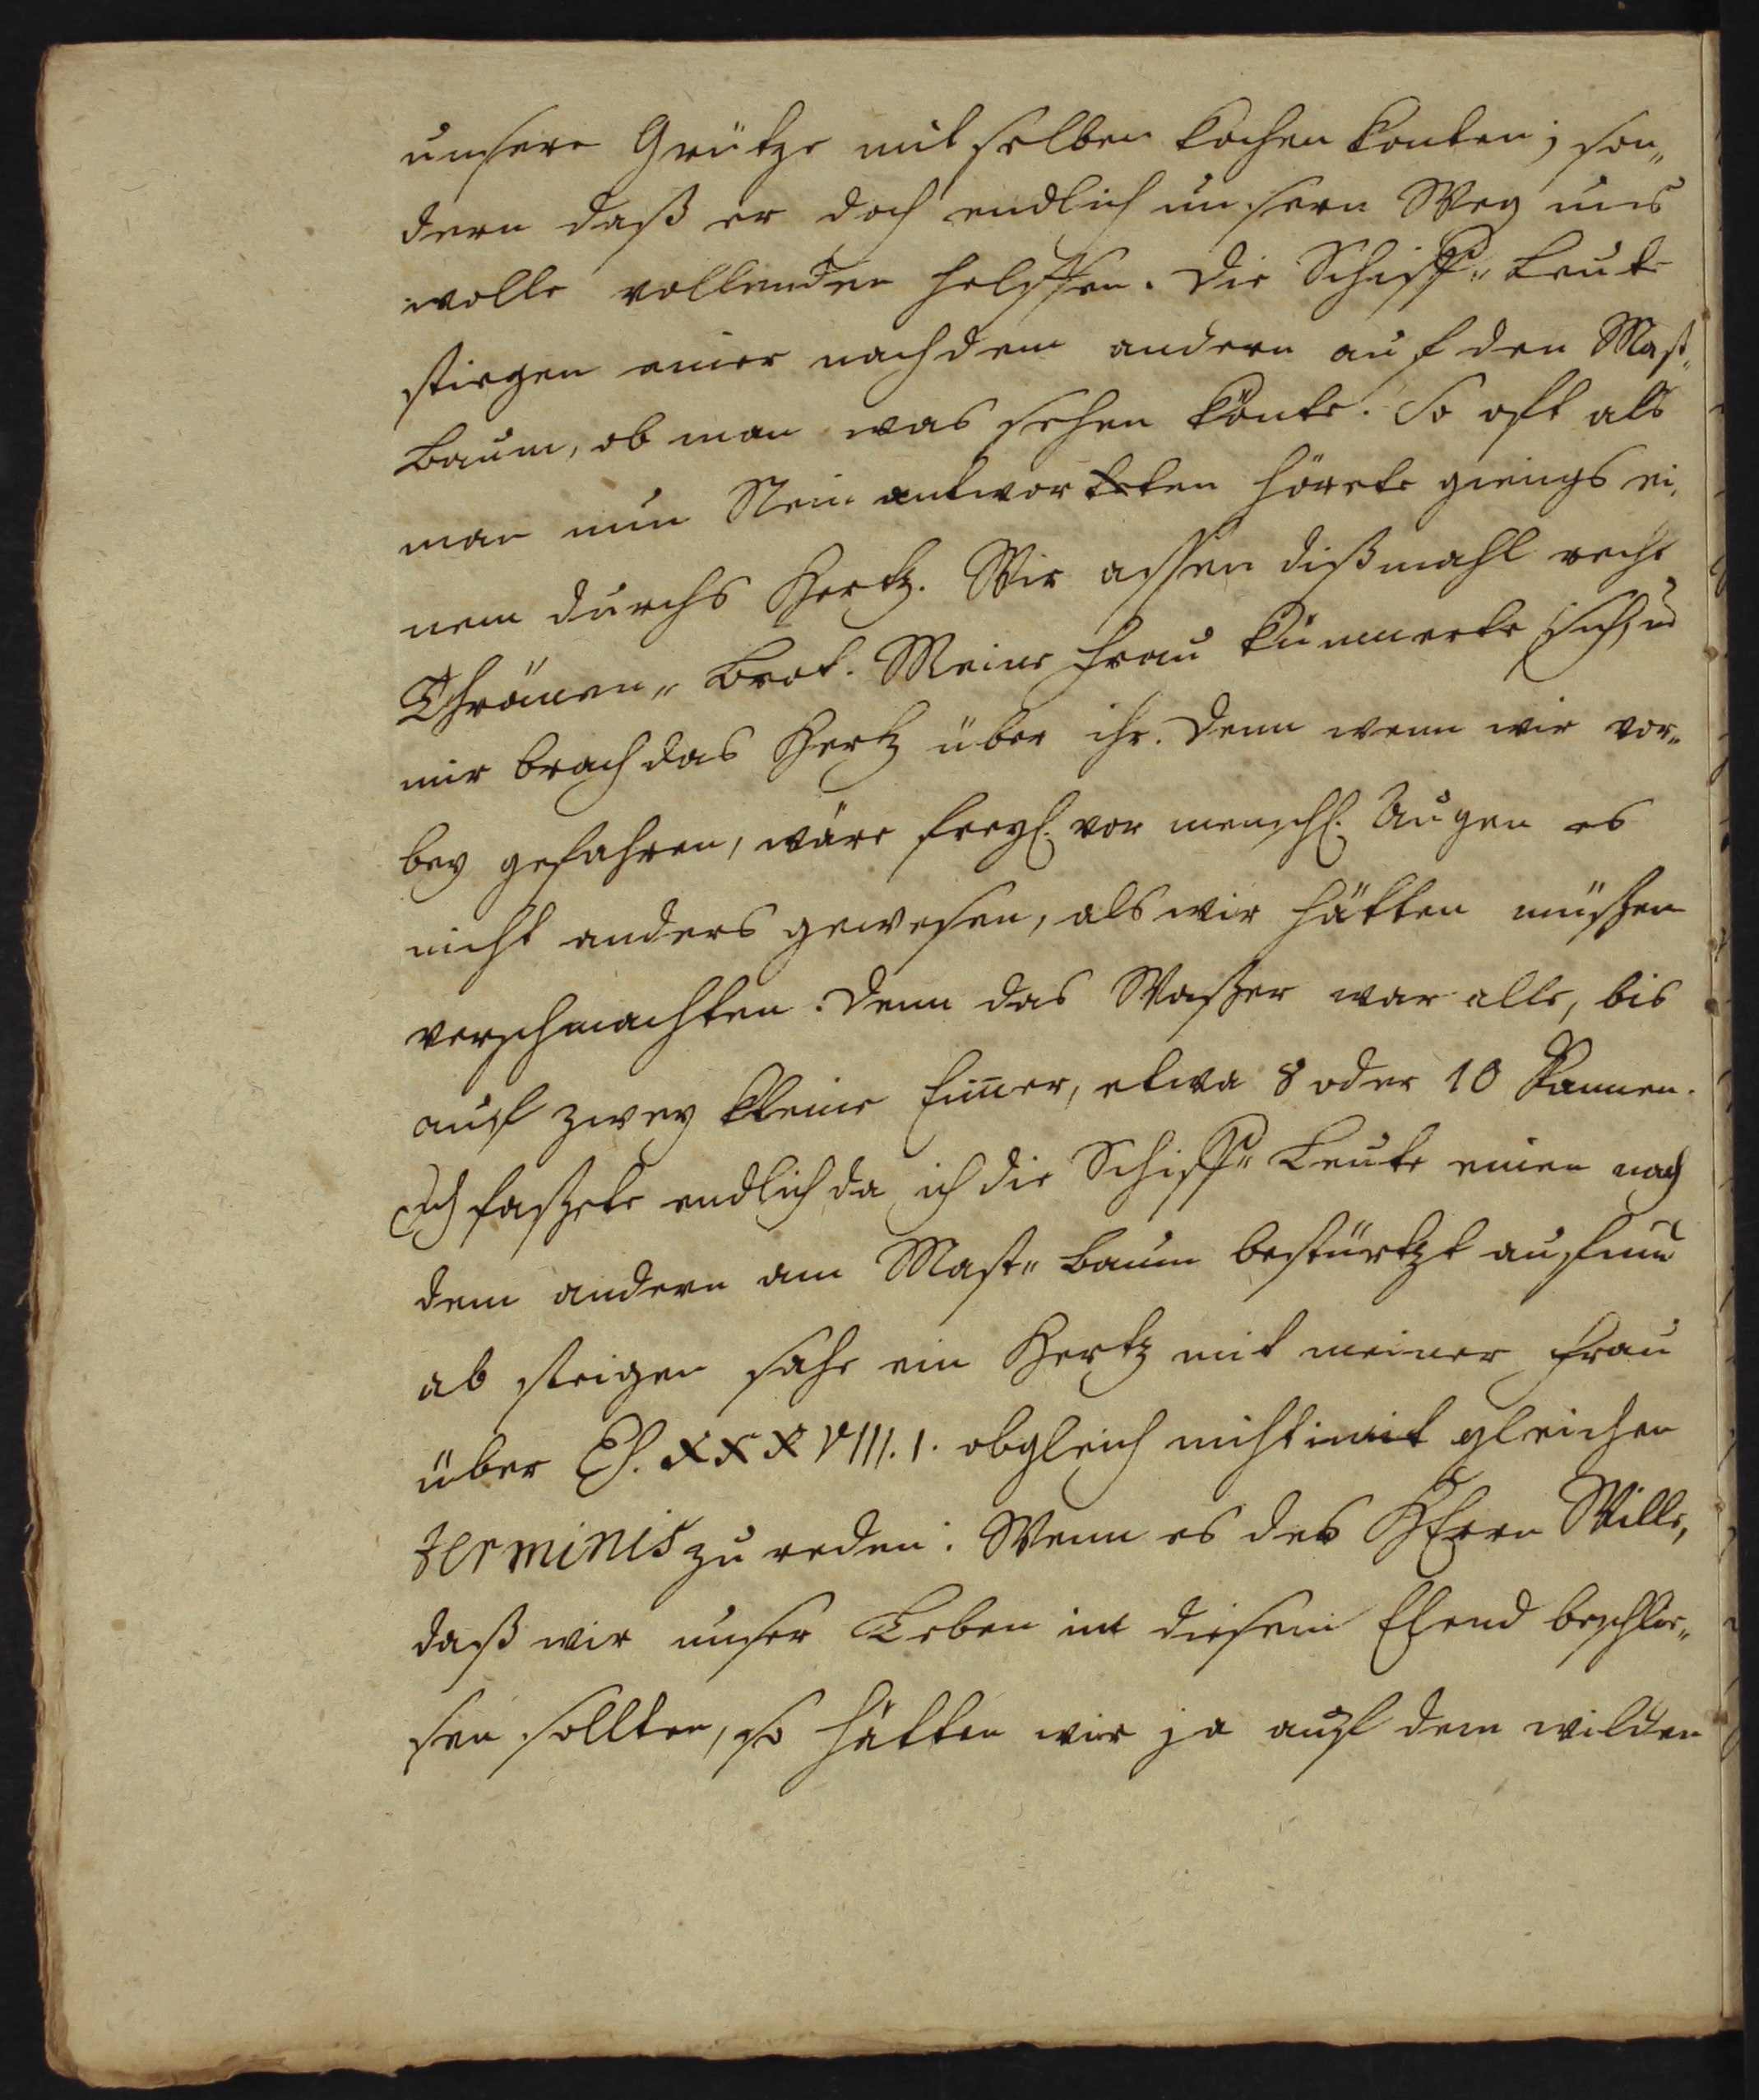 unsere Grütze mit selben kochen konten; son„
dern daß er doch endlich unsern Weg uns
wolle vollenden helffen. Die Schiff„ Leute
stiegen einer nach dem andern auf den Mast„
Baum, ob man was sehen könte. So oft als
man nun Nein antworteten hörete giengs ei„
nem durchs Hertz. Wir assen dißmahl recht
Thränen„ Brot. Meine Frau kümmerte sich, u.
mir brach das Hertz über ihr. Denn wenn wir vor„
bey gefahren, wäre freyl. vor menschl. Augen es
nicht anders gewesen, als wir hätten müßen
verschmachten. Denn das Waßer war alle, bis
auf zwey kleine Eim̄er, etwa 8 oder 10 Kannen.
Ich faßete endlich da ich die Schiff„ Leute einen nach
dem andern am Mast„ Baum bestürtzt auf und
ab steigen sahe ein Hertz mit meiner Frau
über Es. XXXVIII. 1. obgleich nicht mit gleichen
terminis zu reden: Wenn es des HErrn Wille,
daß wir unser Leben in diesem Elend beschlie„
sen sollten, so hätten wir ja auf dem wilden